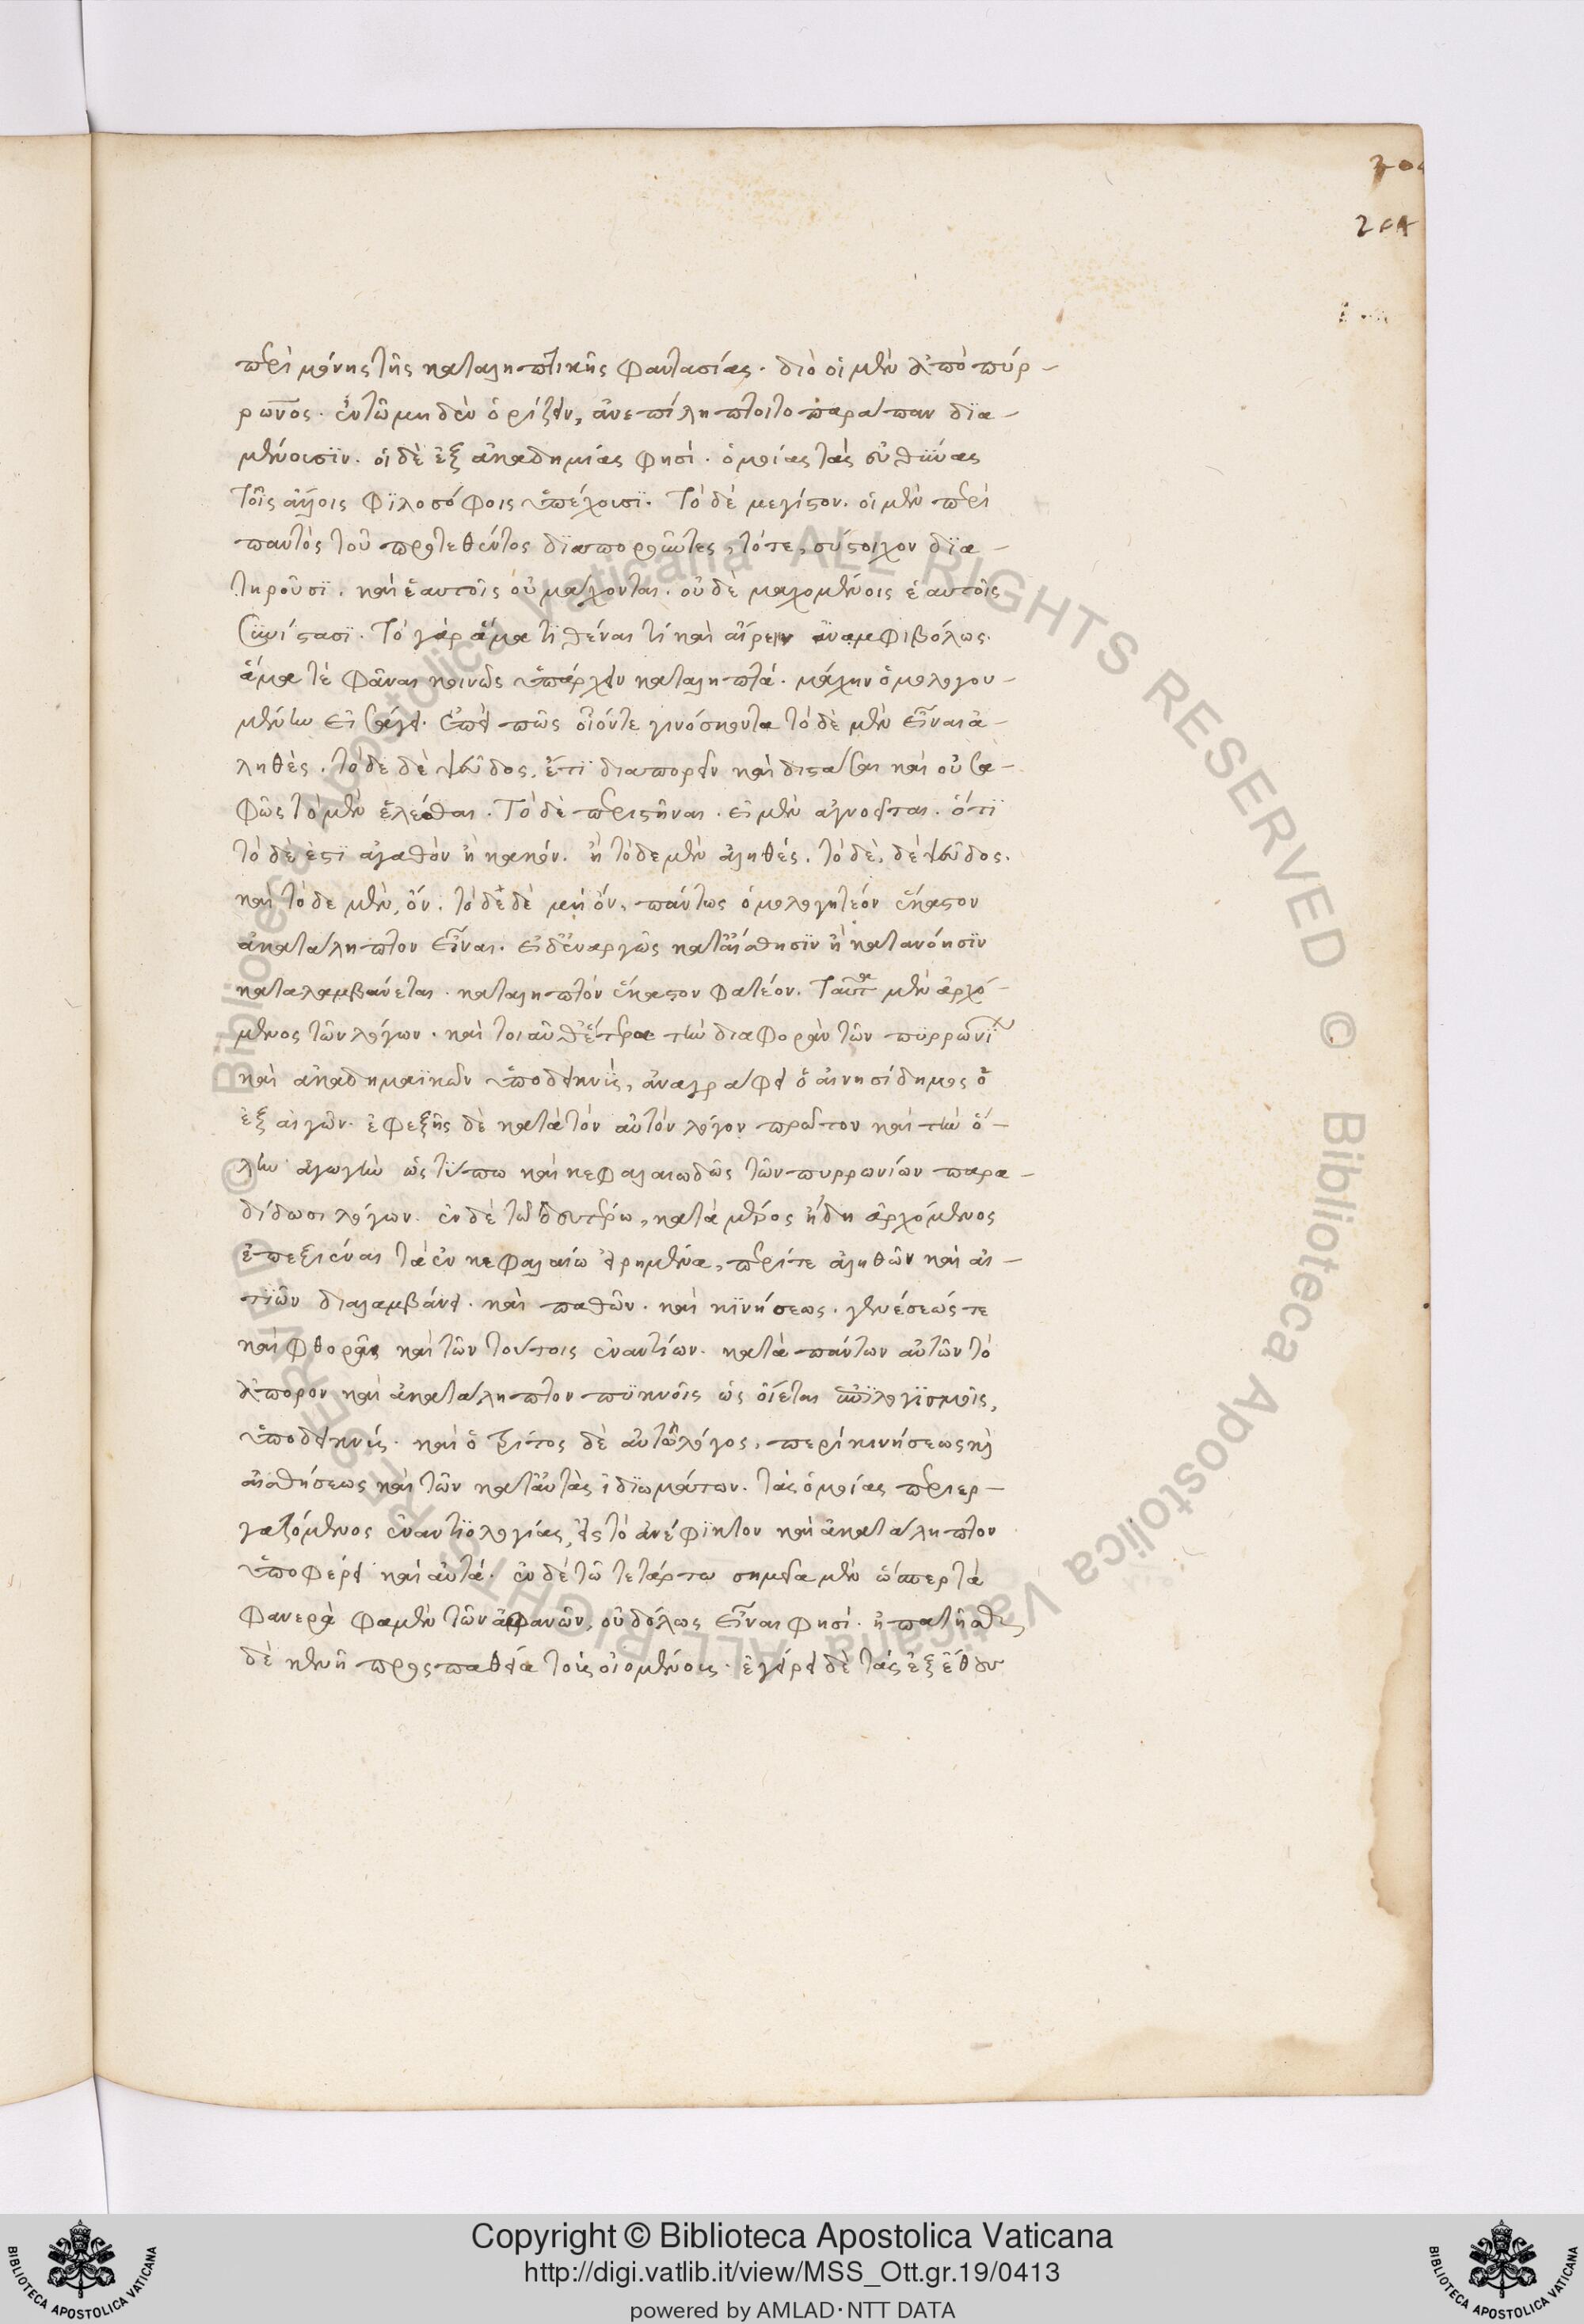 περὶ μόνης τῆς καταληπτικῆς φαντασίας. διὸ οἱ μὲν ἀπὸ πύρ-
ρωνος. ἐν τῶ μηδὲν ὁρίζειν, ἀνεπίληπτοι τοπαράπαν δϊα-
μένουσϊν. οἱ δὲ ἐξ ἀκαδημίας φησὶ. ὁμοίας τὰς εὐθύνας
τοῖς ἄλλοις φϊλοσόφοις ὑπέχουσϊ. Τὸ δὲ μεγίστον. οἱ μὲν περὶ
παντὸς τοῦ προτεθέντος δϊαποροῦντες, τότε, σύστοιχον δϊα-
τηροῦσϊ. καὶ ἑαυτοῖς οὐ μάχονται. οὐδὲ μαχομένοις ἑαυτοῖς
συνίστασϊ. Τὸ γὰρ ἅμα τϊθέναι τί καὶ αἴρειν ἀναμφιβόλως.
ἅμα τέ φᾶναι κοινῶς ὑπάρχειν καταληπτά. μάχην ὁμολογου-
μένην εἰσάγει. ἐπεὶ πῶς οἷόντε γινόσκοντα τόδε μὲν εἶναι ἀ-
ληθές. τόδε δὲ ψεῦδος, ἔτϊ διαπορεῖν καὶ διστάσαι καὶ οὐ σα-
φῶς τὸ μὲν ἑλέσθαι. Τὸ δὲ περιστῆναι. εἰ μὲν ἀγνοεῖται. ὅτϊ
τὸ δὲ ἐστϊ ἀγαθὸν ἢ κακόν. ἢ τόδε μὲν ἀληθές. τὸ δὲ, δὲ ψεῦδος.
καὶ τόδε μὲν, ὄν. τὸ δὲ δὲ μὴ ὄν, πάντως ὁμολογητέον ἕκαστον
ἀκατάληπτον εἶναι. εἰ δ' ἐναργῶς κατ' αἴσθησϊν ἢ κατα νόησϊν
καταλαμβάνεται. καταληπτὸν ἕκαστον φατέον. Ταῦτα μὲν ἀρχό-
μενος τῶν λόγων. καὶ τοιαῦθ' ἕτερα τὴν διαφορὰν τῶν πϋρρωνί
καὶ ἀκαδημαϊκῶν ὑποδεικνὺς, ἀναγράφει ὁ αἰνησίδημος ὁ
ἐξ αἰγῶν. ἐφεξῆς δὲ κατὰ τὸν αὐτὸν λόγον πρῶτον καὶ τὴν ὅ-
λην ἀγωγὴν ὡς τύπω καὶ κεφαλαιωδῶς τῶν πυρρωνίων παρα-
δίδωσι λόγων. ἐν δὲ τῶ δευτέρω, κατὰ μέρος ἤδη ἀρχόμενος
ἐπεξιέναι τὰ ἐν κεφαλαίω εἰρημένα, περί τε ἀληθῶν καὶ αἰ-
τϊῶν διαλαμβάνει. καὶ παθῶν. καὶ κϊνήσεως. γενέσεώς τε
καὶ φθορᾶς καὶ τῶν τούτοις ἐναντίων. κατὰ πάντων αὐτῶν τὸ
ἄπορον καὶ ἀκατάληπτον πϋκνοῖς ὡς οἴεται ἐπϊλογϊσμοῖς,
ὑποδεικνύς. καὶ ὁ τρίτος δὲ αὐτῶ λόγος. περὶ κινήσεως καὶ
αἰσθήσεως καὶ τῶν κατ' αὐτὰς ἰδϊωμάτων. τὰς ὁμοίας περιερ-
γαζόμενος ἐναντϊολογίας, εἰς τὸ ἀνέφϊκτον καὶ ἀκατάληπτον
ὑποφέρει καὶ αὐτά. ἐν δὲ τῶ τετάρτω σημεῖα μὲν ὥσπερ τὰ
φανερὰ φαμὲν τῶν ἀφανῶν, οὐδ' ὅλως εἶναι φησὶ. ἠπατῆσθαι
δὲ κενῆ προςπαθεία τοὺς οἰομένους. ἐγείρει δὲ τὰς ἐξ ἔθου